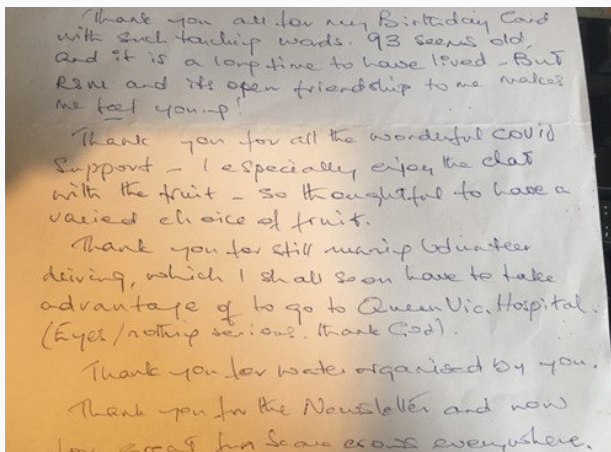 Thank you all for my Birthday Card
with such touching words. 93 seems old
and it is a long time to have lived - But
RSM and its open friendship to me makes
me feel young!
Thank you for all the wonderful COVID
Support - I especially enjoy the chat
with the fruit - so thoughtful to have a
varied choice of fruit.
Thank you for still running Volunteer
driving, which I shall soon have to take
advantage of to go to Queen Vic. Hospital.
(Eyes/nothing serious, thank God).
Thank you for water organised by you.
Thank you for the Newsletter and now
great fun Scare crows everywhere.